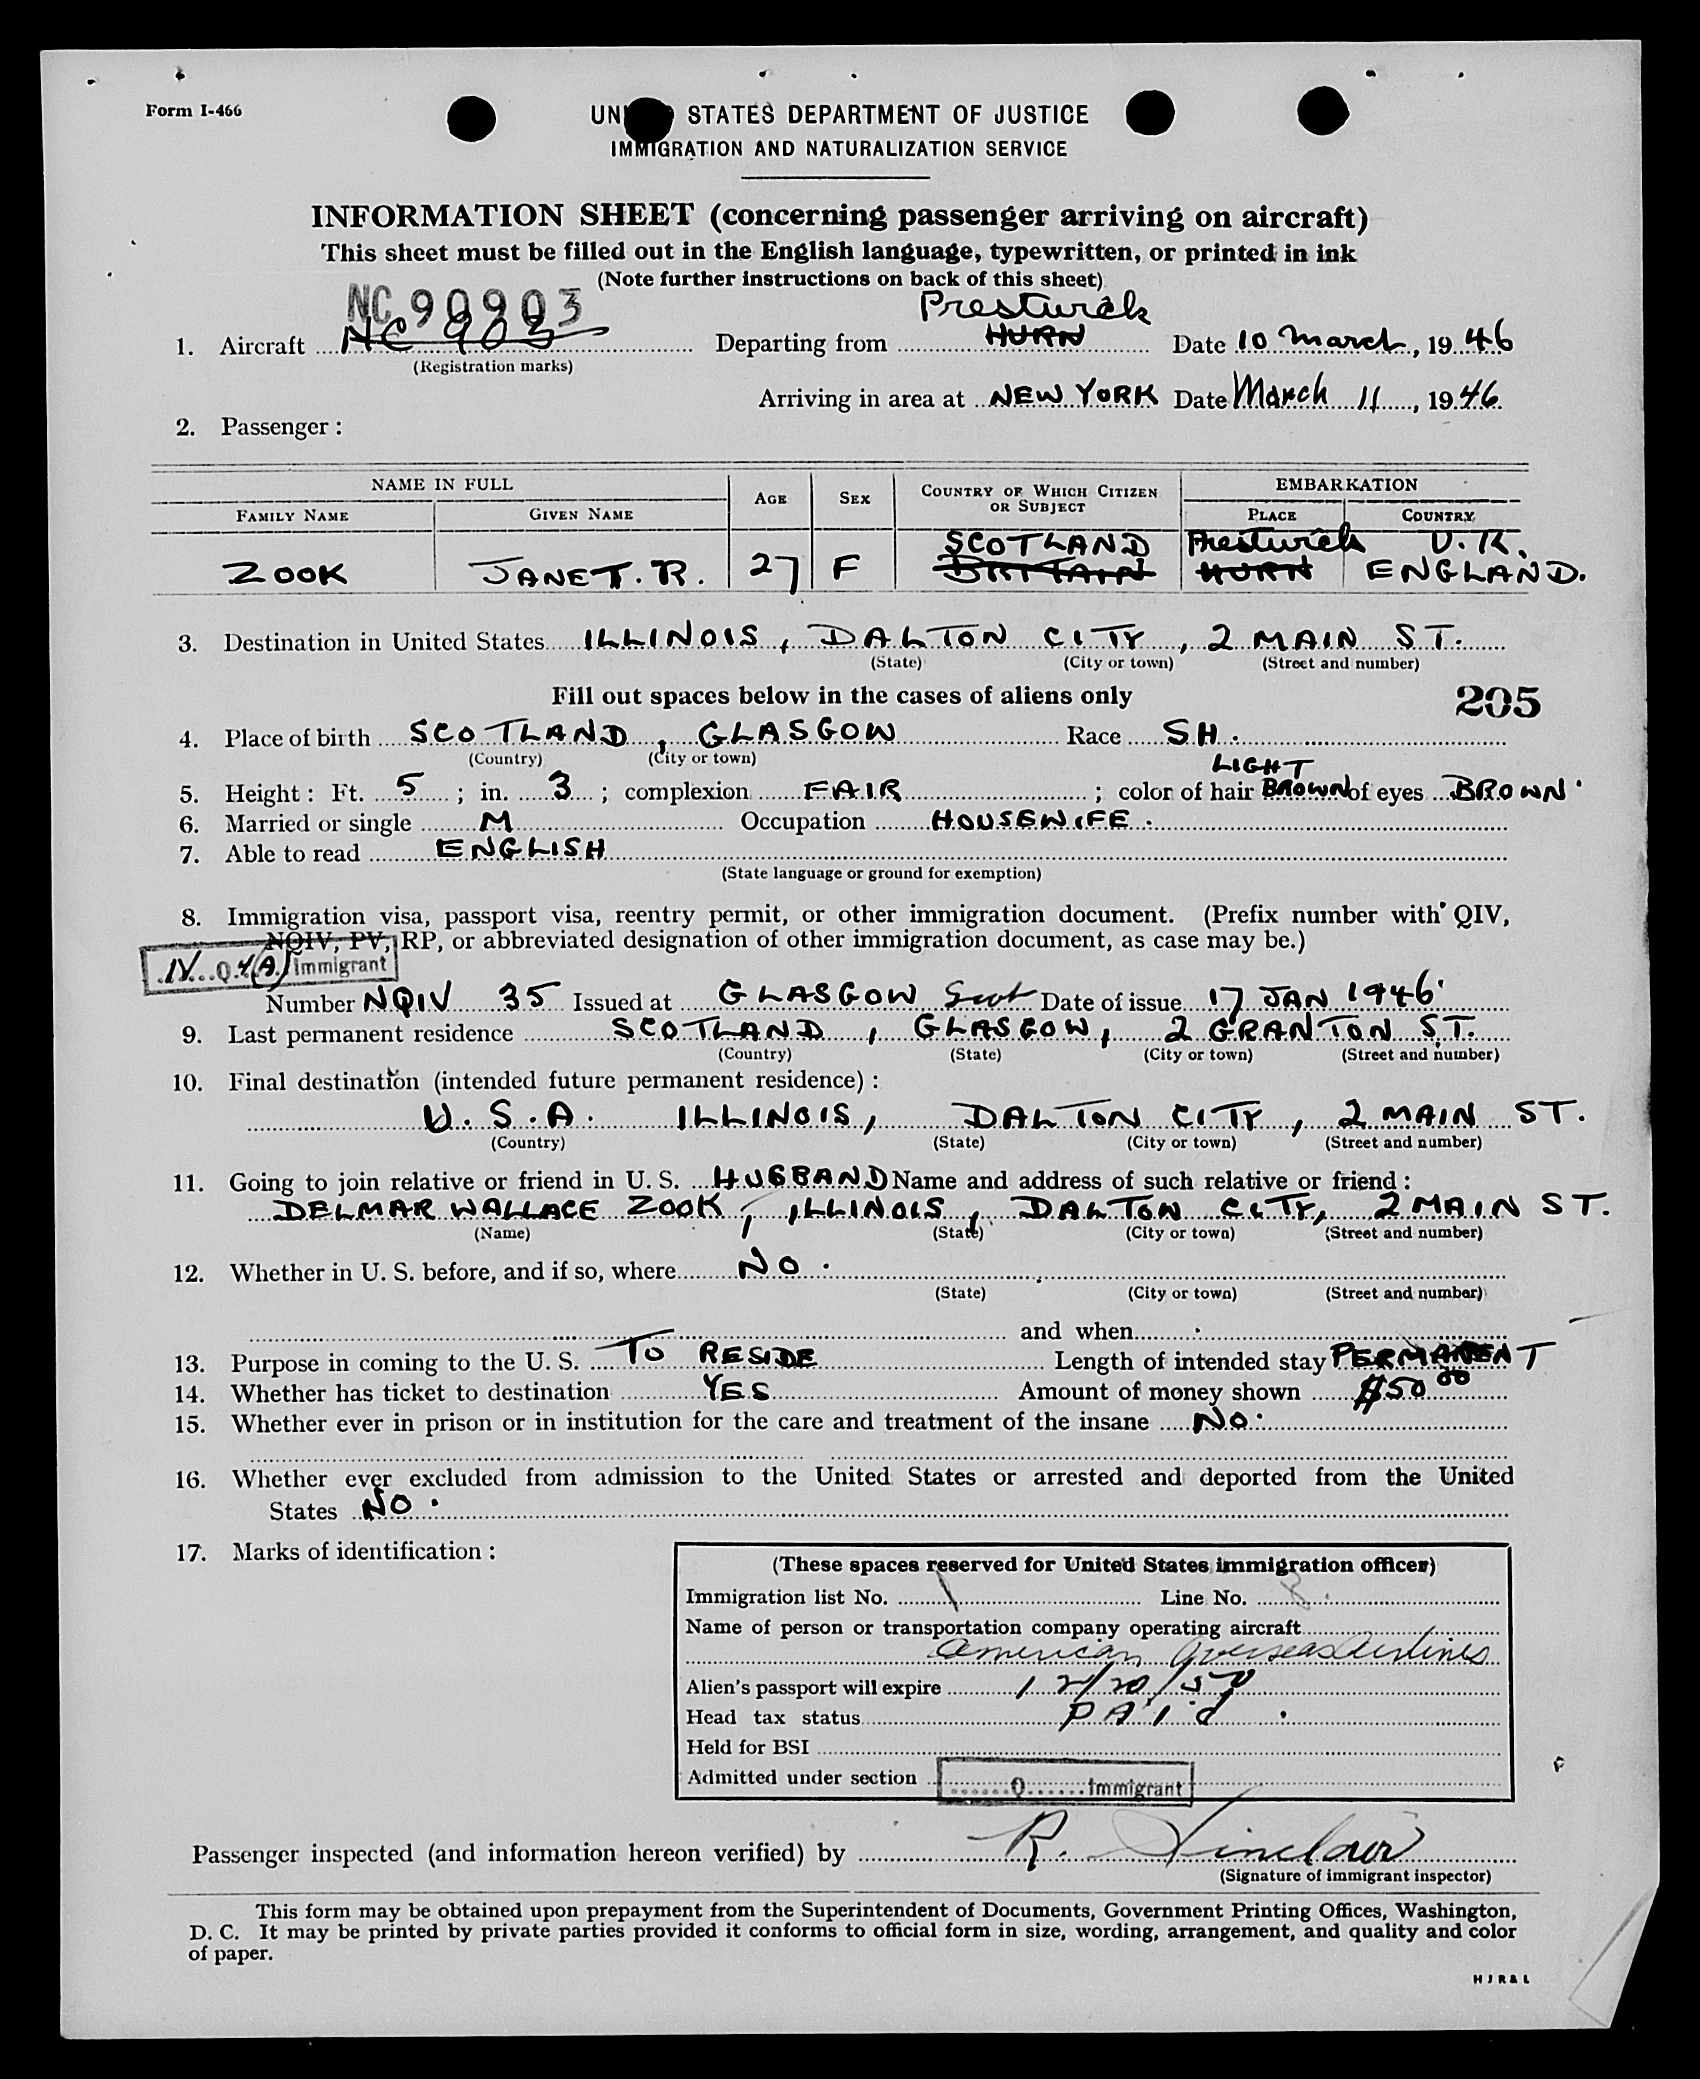 Form I-466
UNITED STATES DEPARTMENT OF JUSTICE
IMMIGRATION AND NATURALIZATION SERVICE
INFORMATION SHEET (concerning passenger arriving on aircraft)
This sheet must be filled out in the English language, typewritten, or printed in ink
(Note further instructions on back of this sheet)
NC 90903 Prestwick
1. Aircraft NC 903 Departing from HURN Date 10 March, 1946
(Registration marks)
Arriving in area at NEW YORK Date March 11, 1946
2. Passenger:
NAME IN FULL AGE SEX COUNTRY OF WHICH CITIZEN OR SUBJECT EMBARKATION
FAMILY NAME GIVEN NAME PLACE COUNTRY
SCOTLAND Prestwick U.K.
ZOOK JANET. R. 27 F BRITAIN HURN ENGLAND.
3. Destination in United States ILLINOIS, DALTON CITY, 2 MAIN ST.
(State) (City or town) (Street and number)
Fill out spaces below in the cases of aliens only 205
4. Place of birth SCOTLAND, GLASGOW Race SH.
(Country) (City or town)
LIGHT
5. Height: Ft. 5; in. 3; complexion FAIR; color of hair BROWN of eyes BROWN
6. Married or single M Occupation HOUSEWIFE.
7. Able to read ENGLISH
(State language or ground for exemption)
8. Immigration visa, passport visa, reentry permit, or other immigration document. (Prefix number with QIV,
NQIV, PV, RP, or abbreviated designation of other immigration document, as case may be.)
IV Q 4(A) Immigrant
Number NQIV 35 Issued at GLASGOW Scot Date of issue 17 JAN 1946
9. Last permanent residence SCOTLAND, GLASGOW, 2 GRANTON ST.
(Country) (State) (City or town) (Street and number)
10. Final destination (intended future permanent residence):
U.S.A. ILLINOIS, DALTON CITY, 2 MAIN ST.
(Country) (State) (City or town) (Street and number)
11. Going to join relative or friend in U. S. HUSBAND Name and address of such relative or friend:
DELMAR WALLACE ZOOK, ILLINOIS, DALTON CITY, 2 MAIN ST.
(Name) (State) (City or town) (Street and number)
12. Whether in U. S. before, and if so, where NO.
(State) (City or town) (Street and number)
and when
13. Purpose in coming to the U. S. TO RESIDE Length of intended stay PERMANENT
14. Whether has ticket to destination YES Amount of money shown $50 00
15. Whether ever in prison or in institution for the care and treatment of the insane NO.
16. Whether ever excluded from admission to the United States or arrested and deported from the United
States NO.
17. Marks of identification:
(These spaces reserved for United States immigration officer)
Immigration list No. 1 Line No. 8
Name of person or transportation company operating aircraft
American Overseas Airlines
Alien's passport will expire 12/20/50
Head tax status Paid.
Held for BSI
Admitted under section Q Immigrant
Passenger inspected (and information hereon verified) by R. Sinclair
(Signature of immigrant inspector)
This form may be obtained upon prepayment from the Superintendent of Documents, Government Printing Offices, Washington,
D. C. It may be printed by private parties provided it conforms to official form in size, wording, arrangement, and quality and color
of paper.
H J R & L